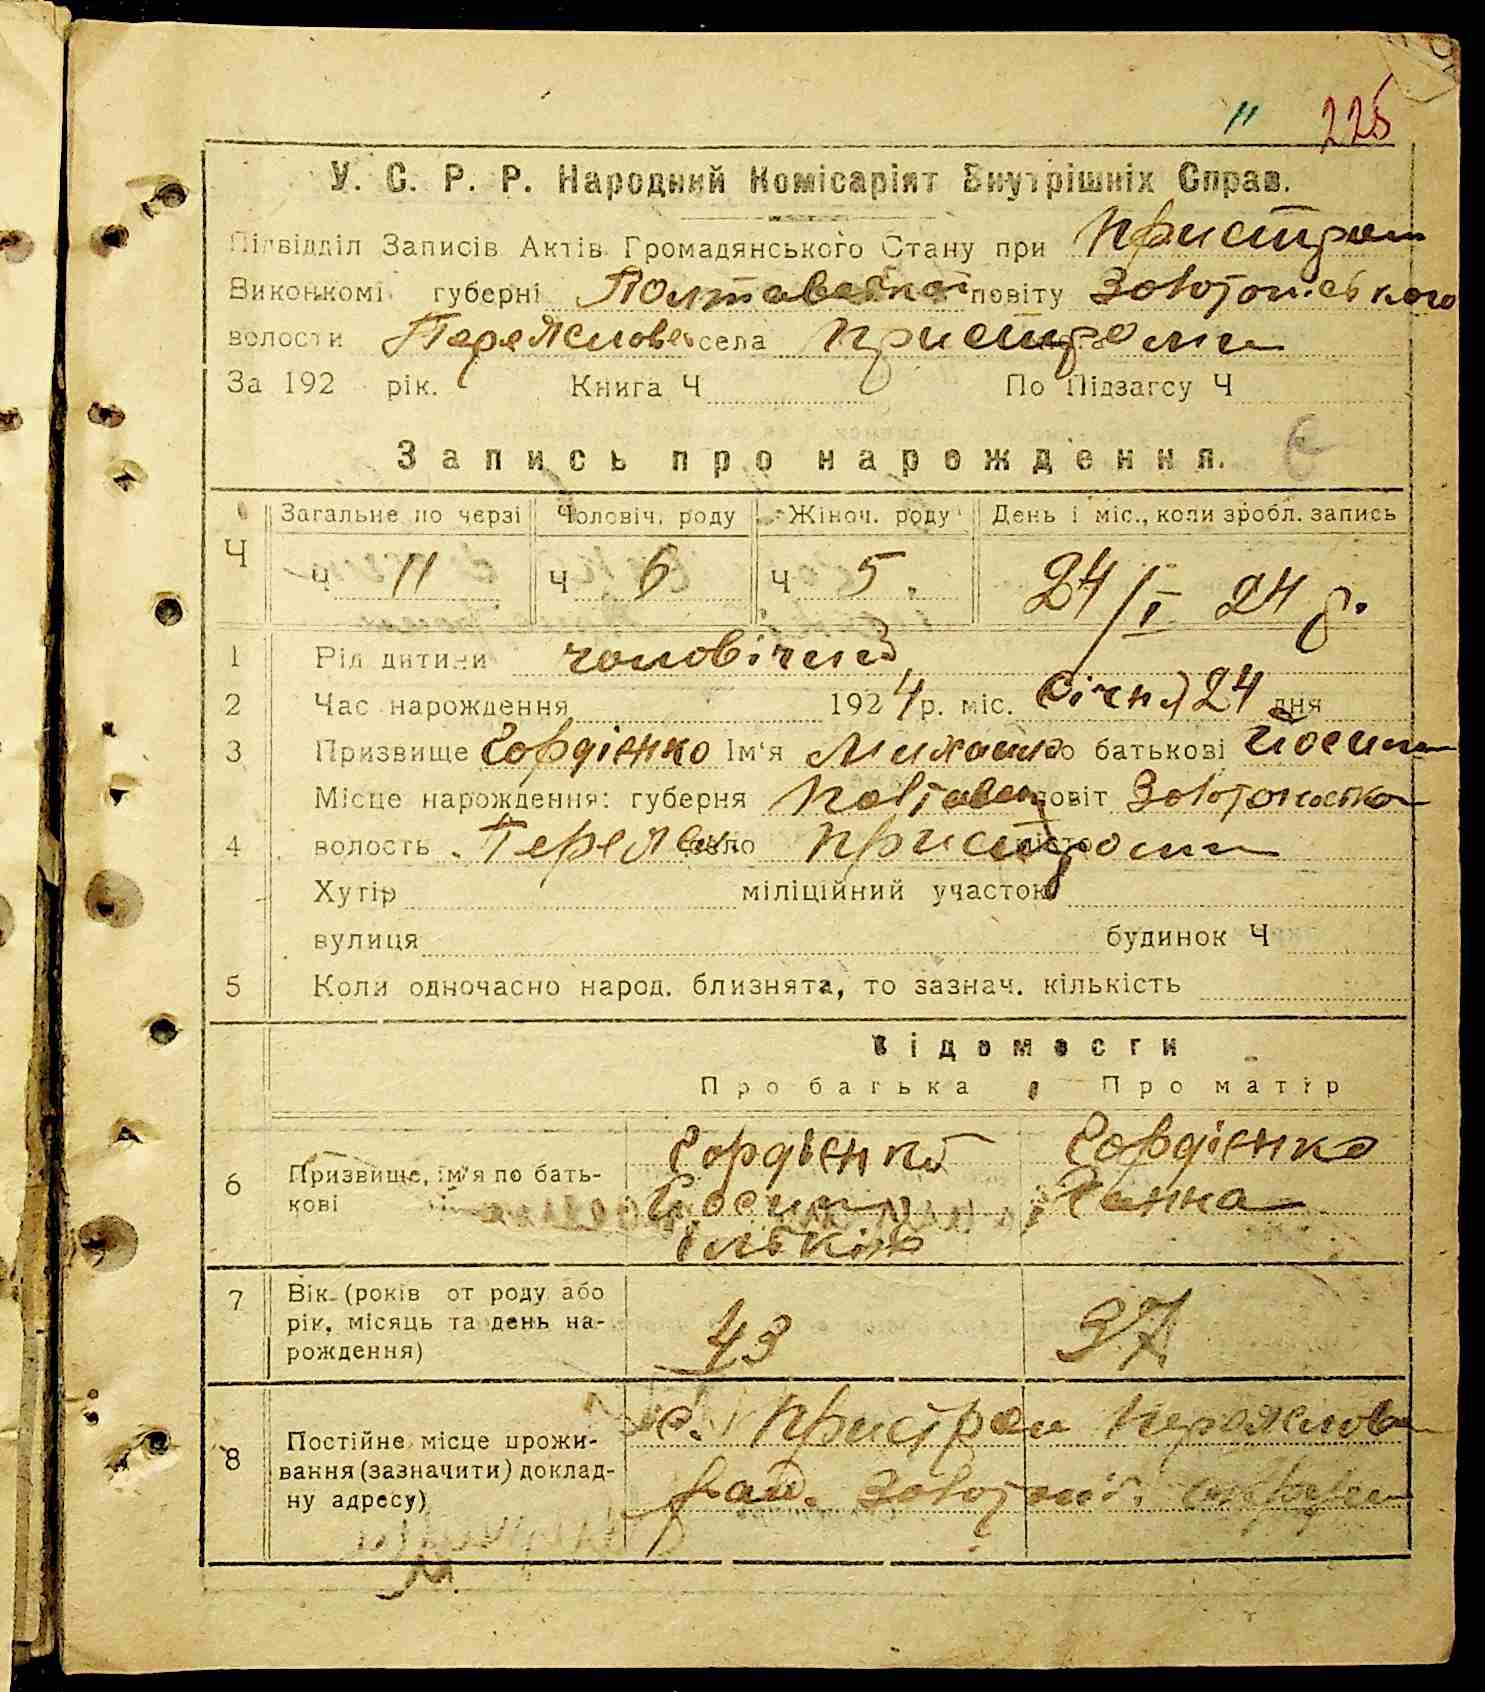 " 225
У. С. Р. Р. Народний Комісаріят Внутрішніх Справ.
Підвідділ Записів Актів Громадянського Стану при Пристром
Виконкомі губерні Полтавської повіту Золотоніського
волости Переяслов села Пристроми
За 192 рік. Книга Ч По Підзагсу Ч
Запись про нарождення. 6
Ч Загальне по черзі Чоловіч. роду Жіноч. роду День і міс., коли зробл. запись
Ч 11 Ч 6 Ч 5. 24/I 24 р.
1 Рід дитини чоловічий
2 Час нарождення 1924 р. міс. Січня 24 дня
3 Призвище Гордієнко Ім'я Михайло по батькові Йосип
Місце нарождення: губерня Повтавск повіт Золотоноська
4 волость Переясл село Пристроми місто
Хутір міліційний участок
вулиця будинок Ч
5 Коли одночасно народ. близнята, то зазнач. кількість
Відомости
Про батька Про матір
6 Призвище, ім'я по бать-
кові
Гордієнко Гордієнко
Йосип Ганна
Ільків
7 Вік (років от роду або
рік, місяць та день на-
рождення)
43 37
8 Постійне місце прожи-
вання (зазначити) доклад-
ну адресу)
с. Пристром Переяслов
рай. Золотоніс. округи